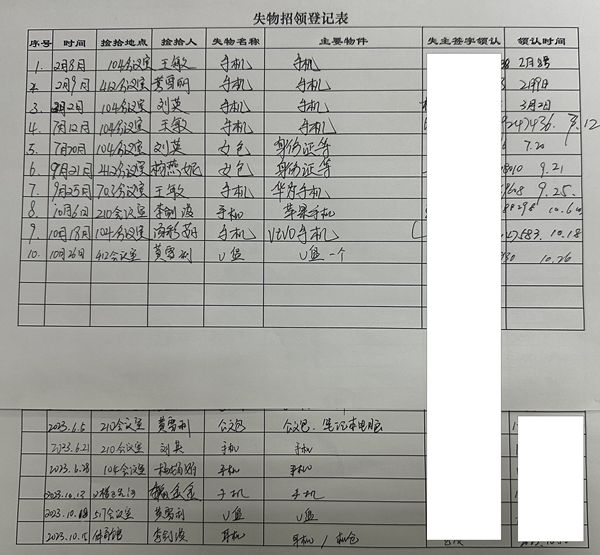 失物招领登记表
序号 时间 捡拾地点 捡拾人 失物名称 主要物件 失主签字领认 领认时间
1. 2月8日 104会议室 王敏 手机 手机 2月8号
2. 2月9日 412会议室 手机 手机 2月9日
3. 3月2日 104会议室 刘英 手机 手机 3月2日
4. 7月12日 104会议室 王敏 手机 手机 7.12
5. 7月20日 104会议室 刘英 女包 身份证等 7.20
6. 9月21日 412会议室 杨燕妮 女包 身份证等 9.21
7. 9月25日 703会议室 王敏 手机 华为手机 9.25
8. 10月6日 210会议室 李剑波 手机 苹果手机 10.6
9. 10月18日 104会议室 手机 vivo手机 47583. 10.18
10. 10月26日 412会议室 黄雪利 U盘 U盘一个 10.26
2023.6.5 210会议室 黄雪利 公文包 公文包、笔记本电脑
2023.6.21 210会议室 刘英 手机 手机
2023.6.28 104会议室 手机 手机
2023.10.12 手机 手机
2023.10.18 517会议室 黄雪利 U盘 U盘
2023.10.15 体育馆 李剑波 耳机 耳机